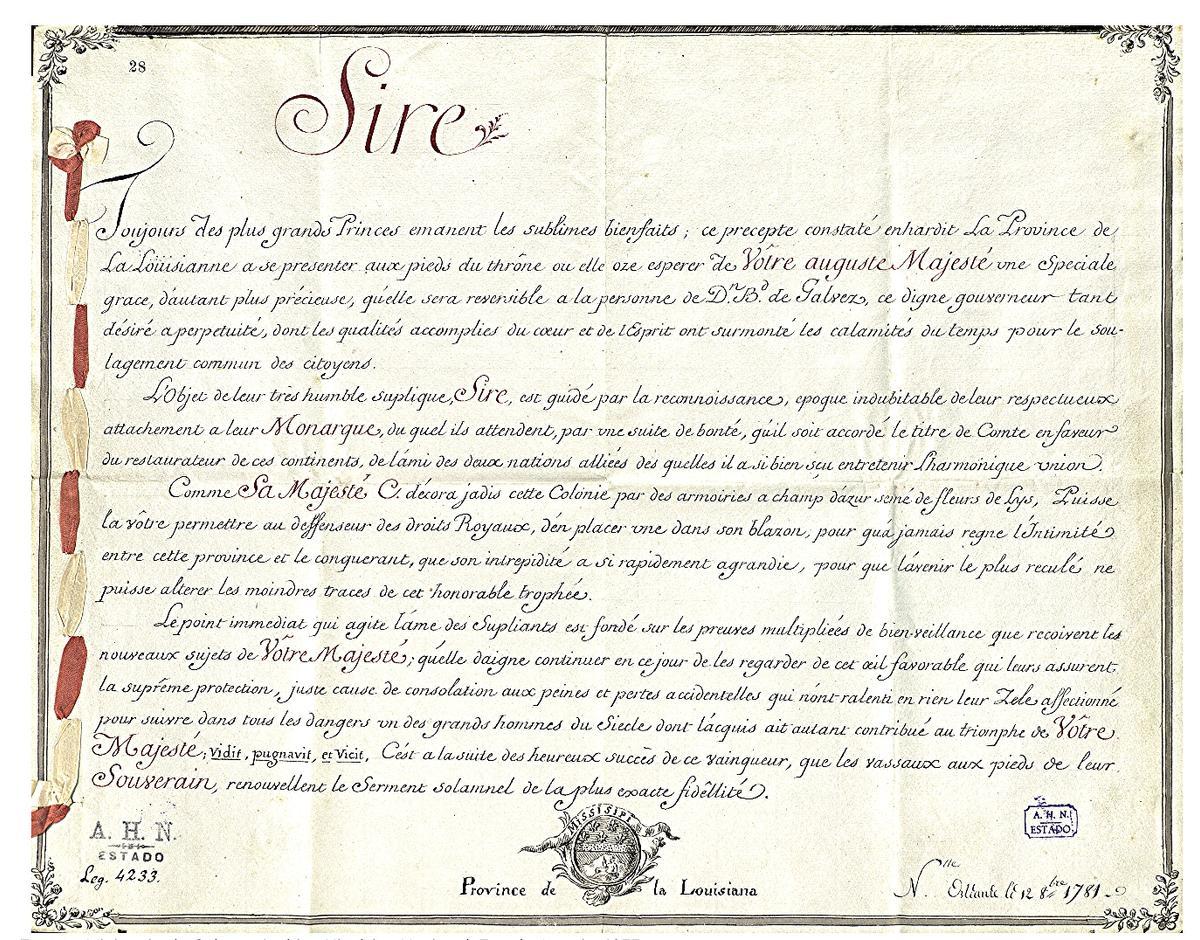 28
Sire
Toujours des plus grands Princes emanent les sublimes bienfaits ; ce precepte constaté enhardit La Province de
La Loüisianne a se presenter aux pieds du thrône ou elle oze esperer de Vôtre auguste Majesté vne Speciale
grace, d'autant plus précieuse, qu'elle sera reversible a la personne de D.n B.do de Galvez, ce digne gouverneur tant
désiré a perpetuité, dont les qualités accomplies du cœur et de l'Esprit ont surmonté les calamités du temps pour le sou-
lagement commun des citoyens.
L'Objet de leur très humble suplique, Sire, est guidé par la reconnoissance, epoque indubitable de leur respectueux
attachement a leur Monarque, du quel ils attendent, par vne suite de bonté, qu'il soit accordé le titre de Comte en faveur
du restaurateur de ces continents, de l'ami des deux nations alliées des quelles il a si bien sçu entretenir l'harmonique vnion.
Comme Sa Majesté C. décora jadis cette Colonie par des armoiries a champ d'azur semé de fleurs de Lys, Puisse
la vôtre permettre au deffenseur des droits Royaux, d'en placer vne dans son blazon, pour qu'a jamais regne l'Intimité
entre cette province et le conquerant, que son intrepidité a si rapidement agrandie, pour que l'avenir le plus reculé ne
puisse alterer les moindres traces de cet honorable trophée.
Le point immediat qui agite l'âme des Supliants est fondé sur les preuves multipliées de bien-veillance que recoivent les
nouveaux sujets de Vôtre Majesté ; qu'elle daigne continuer en ce jour de les regarder de cet œil favorable qui leurs assurent
la suprême protection, juste cause de consolation aux peines et pertes accidentelles qui n'ont ralenti en rien leur Zele affectionné
pour suivre dans tous les dangers vn des grands hommes du Siecle dont l'acquis ait autant contribué au triomphe de Vôtre
Majesté ; Vidit, pugnavit, et Vicit, C'est a la suite des heureux succès de ce vainqueur, que les vassaux aux pieds de leur
Souverain, renouvellent le Serment solamnel de la plus exacte fidêllité.
MISSISIPI
A. H. N.
ESTADO
Leg. 4233.
A. H. N.
ESTADO
Province de la Louisiana
N.lle Orléans le 12 8.bre 1781